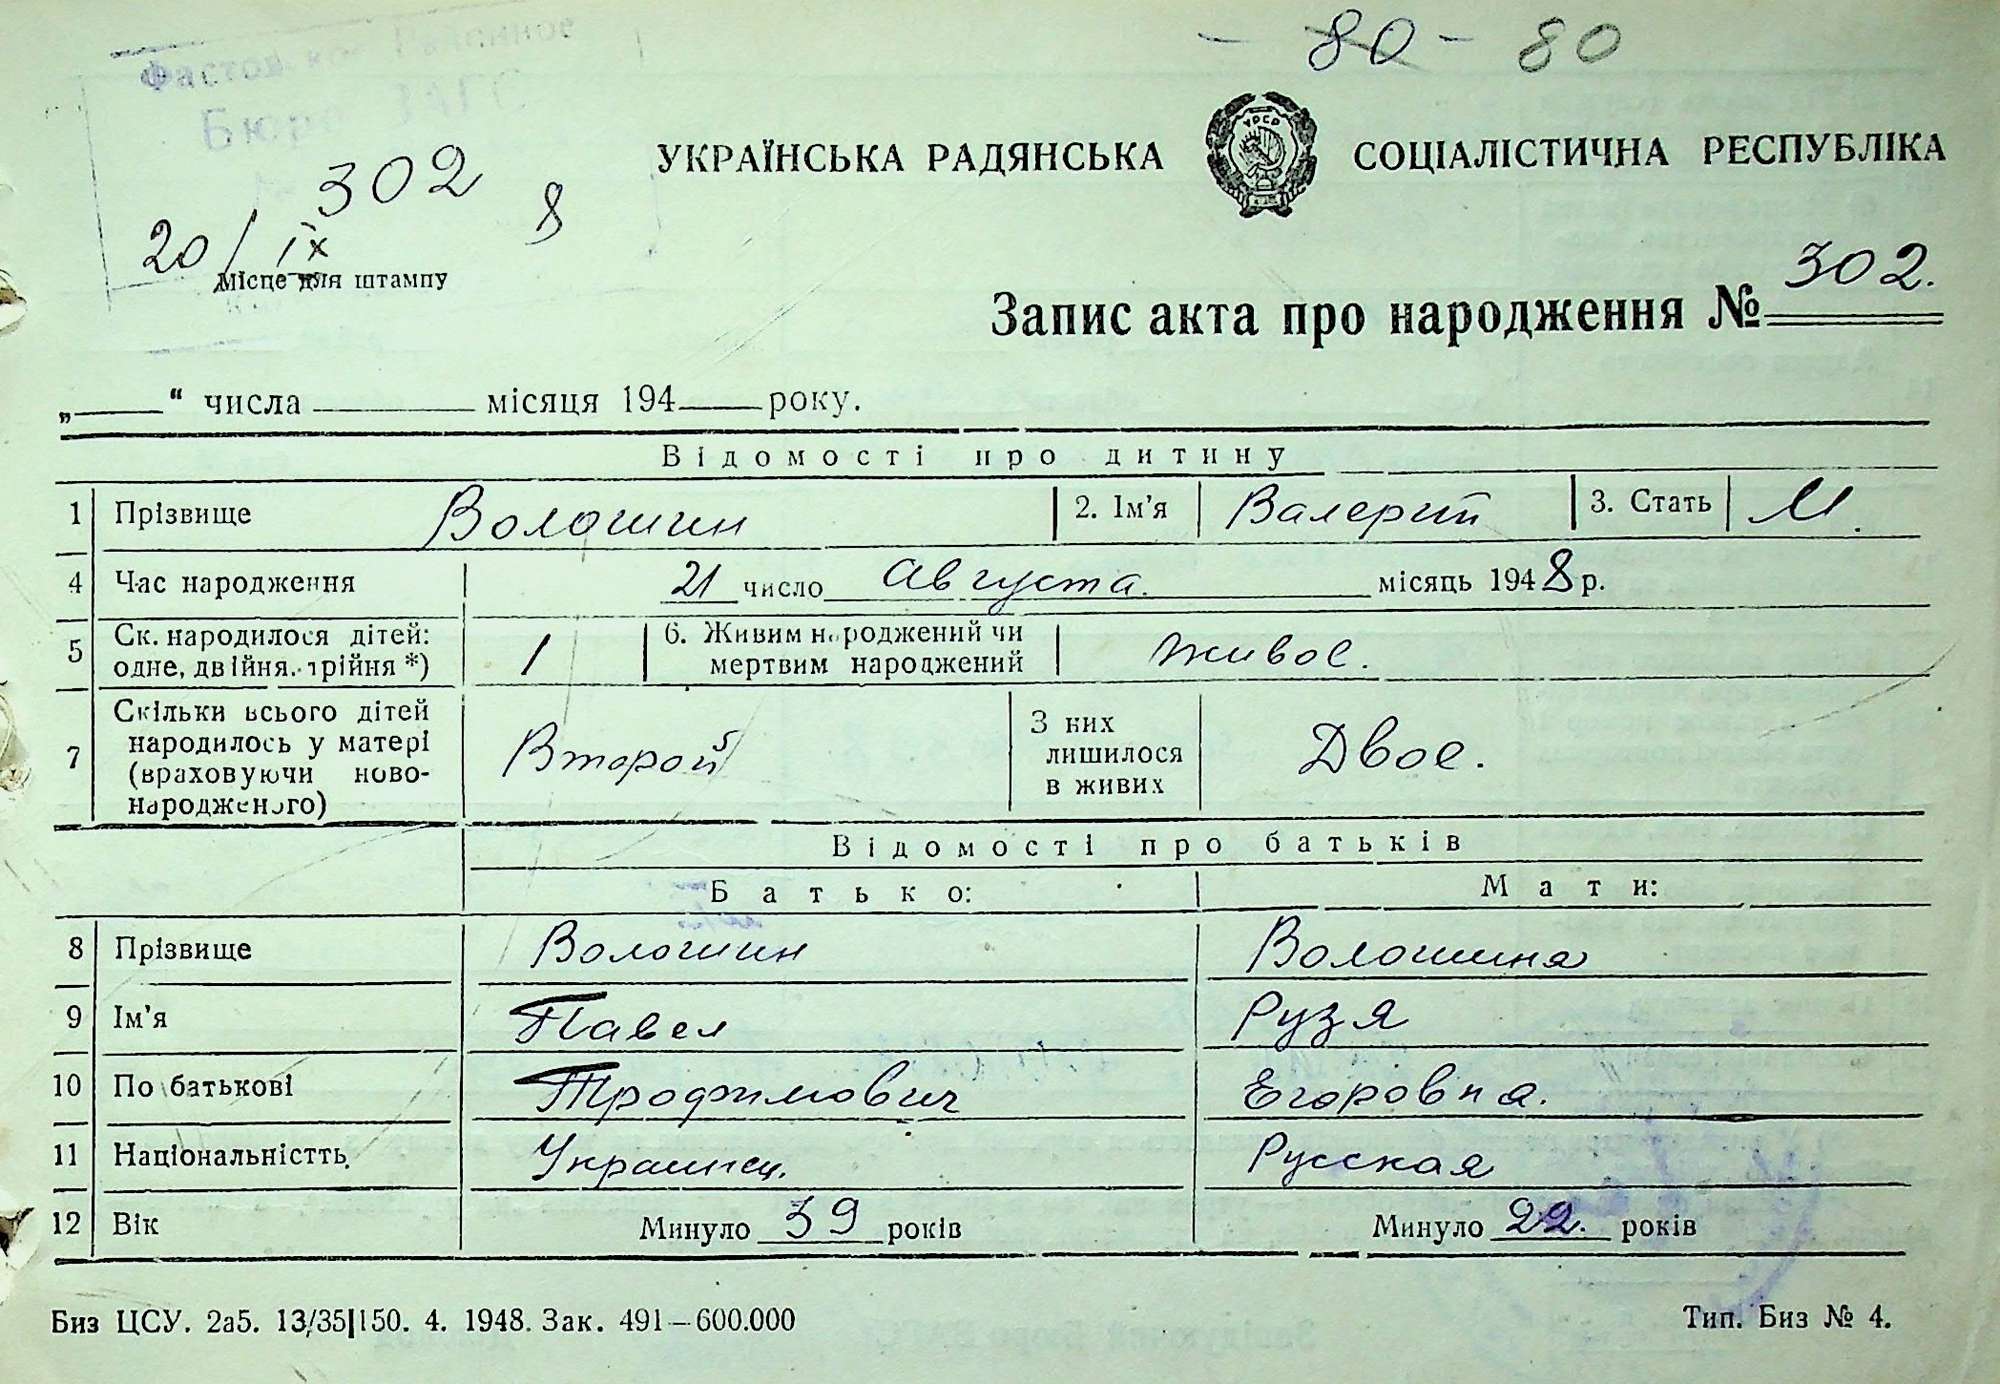 - 80 - 80
Бюро ЗАГС
302
20/IX 8
Місце для штампу
УКРАЇНСЬКА РАДЯНСЬКА СОЦІАЛІСТИЧНА РЕСПУБЛІКА
УРСР
Запис акта про народження № 302.
„ “ числа місяця 194 року.
Відомості про дитину
1 Прізвище Волошин 2. Ім’я Валерий 3. Стать М.
4 Час народження 21 число Августа. місяць 1948 р.
5 Ск. народилося дітей: одне, двійня, трійня *) 1 6. Живим народжений чи мертвим народжений живое.
7 Скільки всього дітей народилось у матері (враховуючи ново-народженого) Второй З них лишилося в живих Двое.
Відомості про батьків
Батько: Мати:
8 Прізвище Волошин Волошина
9 Ім’я Павел Рузя
10 По батькові Трофимович Егоровна.
11 Національністть Украинец. Русская
12 Вік Минуло 39 років Минуло 22. років
Биз ЦСУ. 2а5. 13/35|150. 4. 1948. Зак. 491–600.000 Тип. Биз № 4.